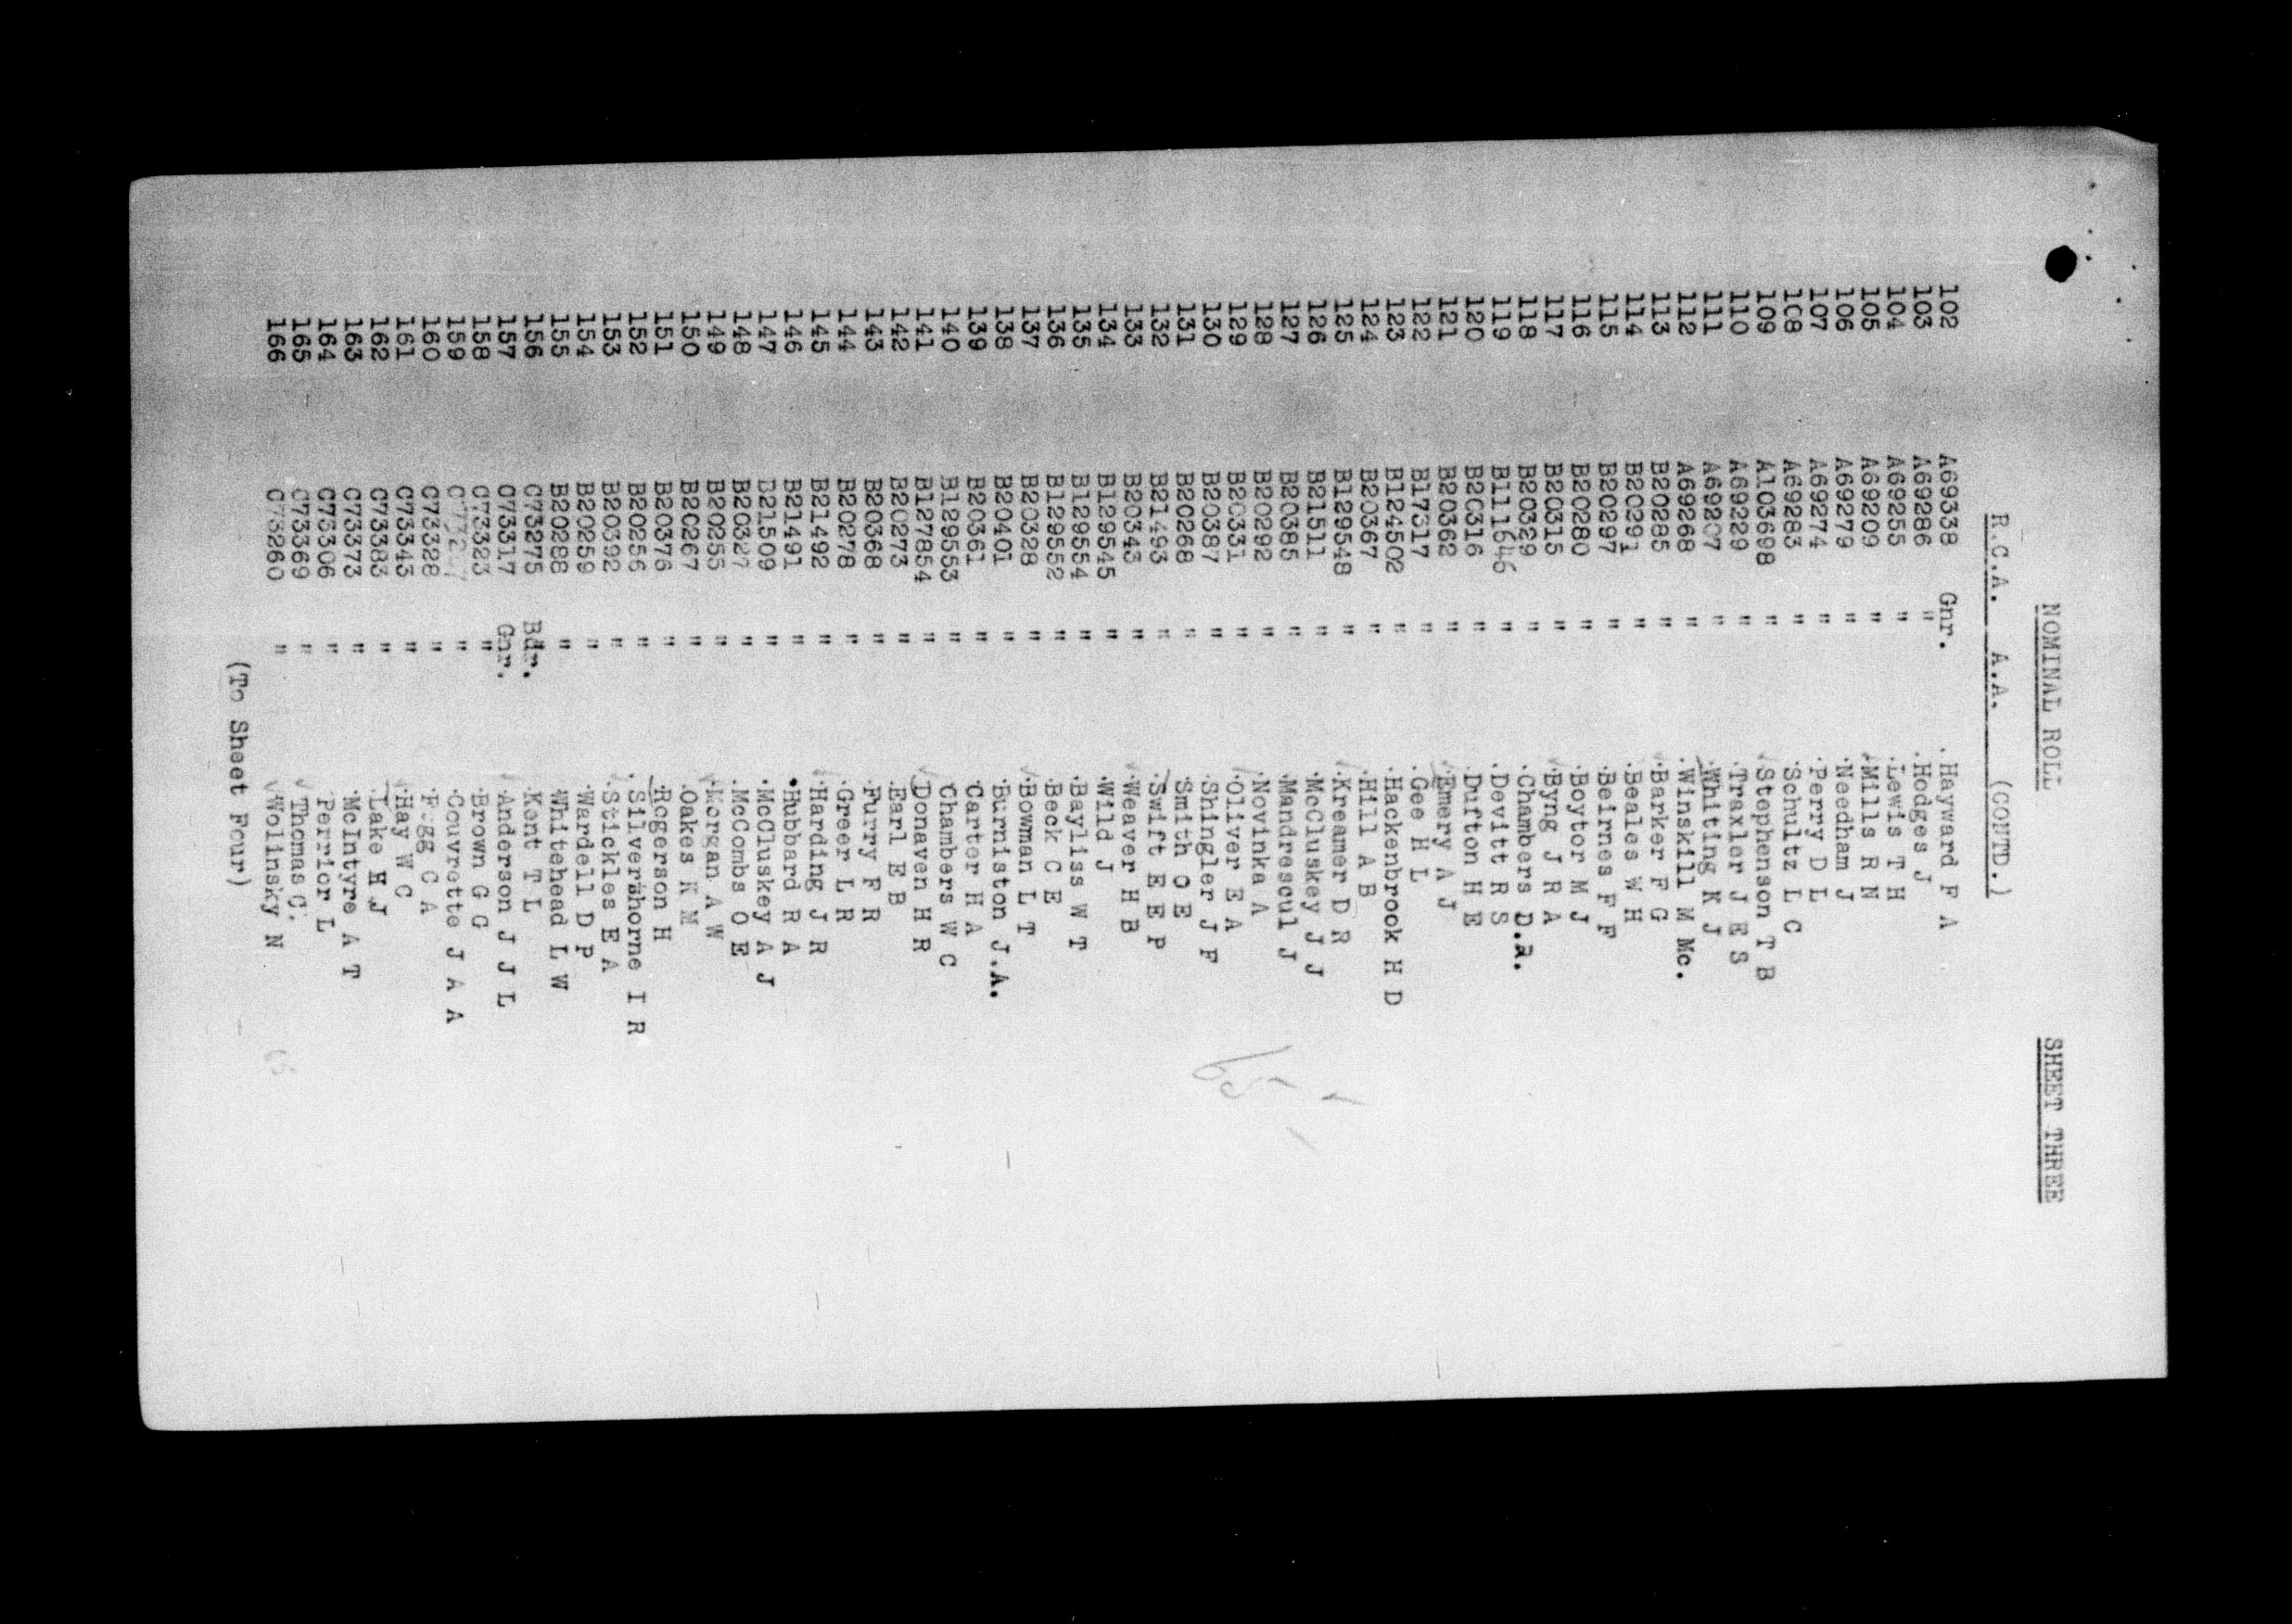 NOMINAL ROLL SHEET THREE
R.C.A. A.A. (CONTD.)
102 A69338 Gnr. Hayward F A
103 A69286 " Hodges J
104 A69255 " Lewis T H
105 A69209 " Mills R N
106 A69279 " Needham J
107 A69274 " Perry D L
108 A69283 " Schultz L C
109 A103698 " Stephenson T B
110 A69229 " Traxler J E S
111 A69207 " Whiting K J
112 A69268 " Winskill M Mc.
113 B20285 " Barker F G
114 B20291 " Beales W H
115 B20297 " Beirnes F F
116 B20280 " Boytor M J
117 B20315 " Byng J R A
118 B20329 " Chambers D.R.
119 B111646 " Devitt R S
120 B20316 " Dufton H E
121 B20362 " Emery A J
122 B17317 " Gee H L
123 B124502 " Hackenbrook H D
124 B20367 " Hill A B
125 B129548 " Kreamer D R
126 B21511 " McCluskey J J
127 B20385 " Mandrescul J
128 B20292 " Novinka A
129 B20331 " Oliver E A
130 B20387 " Shingler J F
131 B20268 " Smith O E
132 B21493 " Swift E E P
133 B20343 " Weaver H B
134 B129545 " Wild J
135 B129554 " Bayliss W T
136 B129552 " Beck C E
137 B20328 " Bowman L T
138 B20401 " Burniston J.A.
139 B20361 " Carter H A
140 B129553 " Chambers W C
141 B127854 " Donaven H R
142 B20273 " Earl E B
143 B20368 " Furry F R
144 B20278 " Greer L R
145 B21492 " Harding J R
146 B21491 " Hubbard R A
147 B21509 " McCluskey A J
148 B20327 " McCombs O E
149 B20255 " Morgan A W
150 B20267 " Oakes N M
151 B20376 " Rogerson H
152 B20256 " Silverthorne I R
153 B20392 " Stickles E A
154 B20259 " Wardell D P
155 B20288 " Whitehead L W
156 C73275 Bdr. Kent T L
157 C73317 Gnr. Anderson J J L
158 C73323 " Brown G G
159 " Couvrette J A A
160 C73328 " C A
161 C73343 " Hay W C
162 C73383 " Lake H J
163 C73373 " McIntyre A T
164 C73306 " Perrior L
165 C73369 " Thomas C.
166 C73260 " Wolinsky N
(To Sheet Four)
65